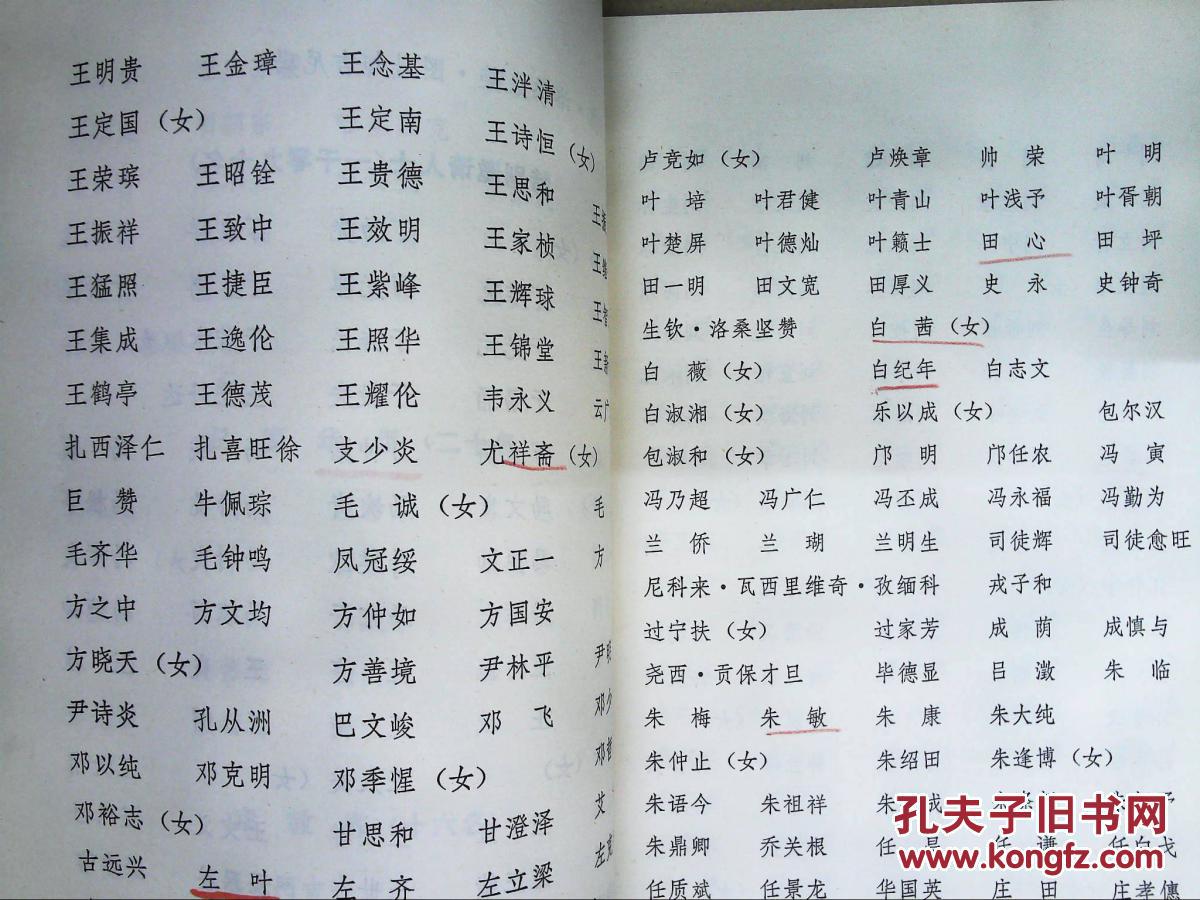 王明贵 王金璋 王念基 王泮清
王定国（女） 王定南 王诗恒（女）
王荣瑸 王昭铨 王贵德 王思和
王振祥 王致中 王效明 王家桢 王
王猛照 王捷臣 王紫峰 王辉球 王
王集成 王逸伦 王照华 王锦堂 王
王鹤亭 王德茂 王耀伦 韦永义 云广
扎西泽仁 扎喜旺徐 支少炎 尤祥斋（女）
巨赞 牛佩琮 毛诚（女） 毛
毛齐华 毛钟鸣 凤冠绥 文正一 方
方之中 方文均 方仲如 方国安
方晓天（女） 方善境 尹林平 尹
尹诗炎 孔从洲 巴文峻 邓飞 邓
邓以纯 邓克明 邓季惺（女） 邓
邓裕志（女） 甘思和 甘澄泽 艾
古远兴 左叶 左齐 左立梁 左
卢竞如（女） 卢焕章 帅荣 叶明
叶培 叶君健 叶青山 叶浅予 叶胥朝
叶楚屏 叶德灿 叶籁士 田心 田坪
田一明 田文宽 田厚义 史永 史钟奇
生钦·洛桑坚赞 白茜（女）
白薇（女） 白纪年 白志文
白淑湘（女） 乐以成（女） 包尔汉
包淑和（女） 邝明 邝任农 冯寅
冯乃超 冯广仁 冯丕成 冯永福 冯勤为
兰侨 兰瑚 兰明生 司徒辉 司徒愈旺
尼科来·瓦西里维奇·孜缅科 戎子和
过宁扶（女） 过家芳 成荫 成慎与
尧西·贡保才旦 毕德显 吕澂 朱临
朱梅 朱敏 朱康 朱大纯
朱仲止（女） 朱绍田 朱逢博（女）
朱语今 朱祖祥 朱
朱鼎卿 乔关根 任 任谦 任白戈
任质斌 任景龙 华国英 庄田 庄孝僡
孔夫子旧书网
www.kongfz.com